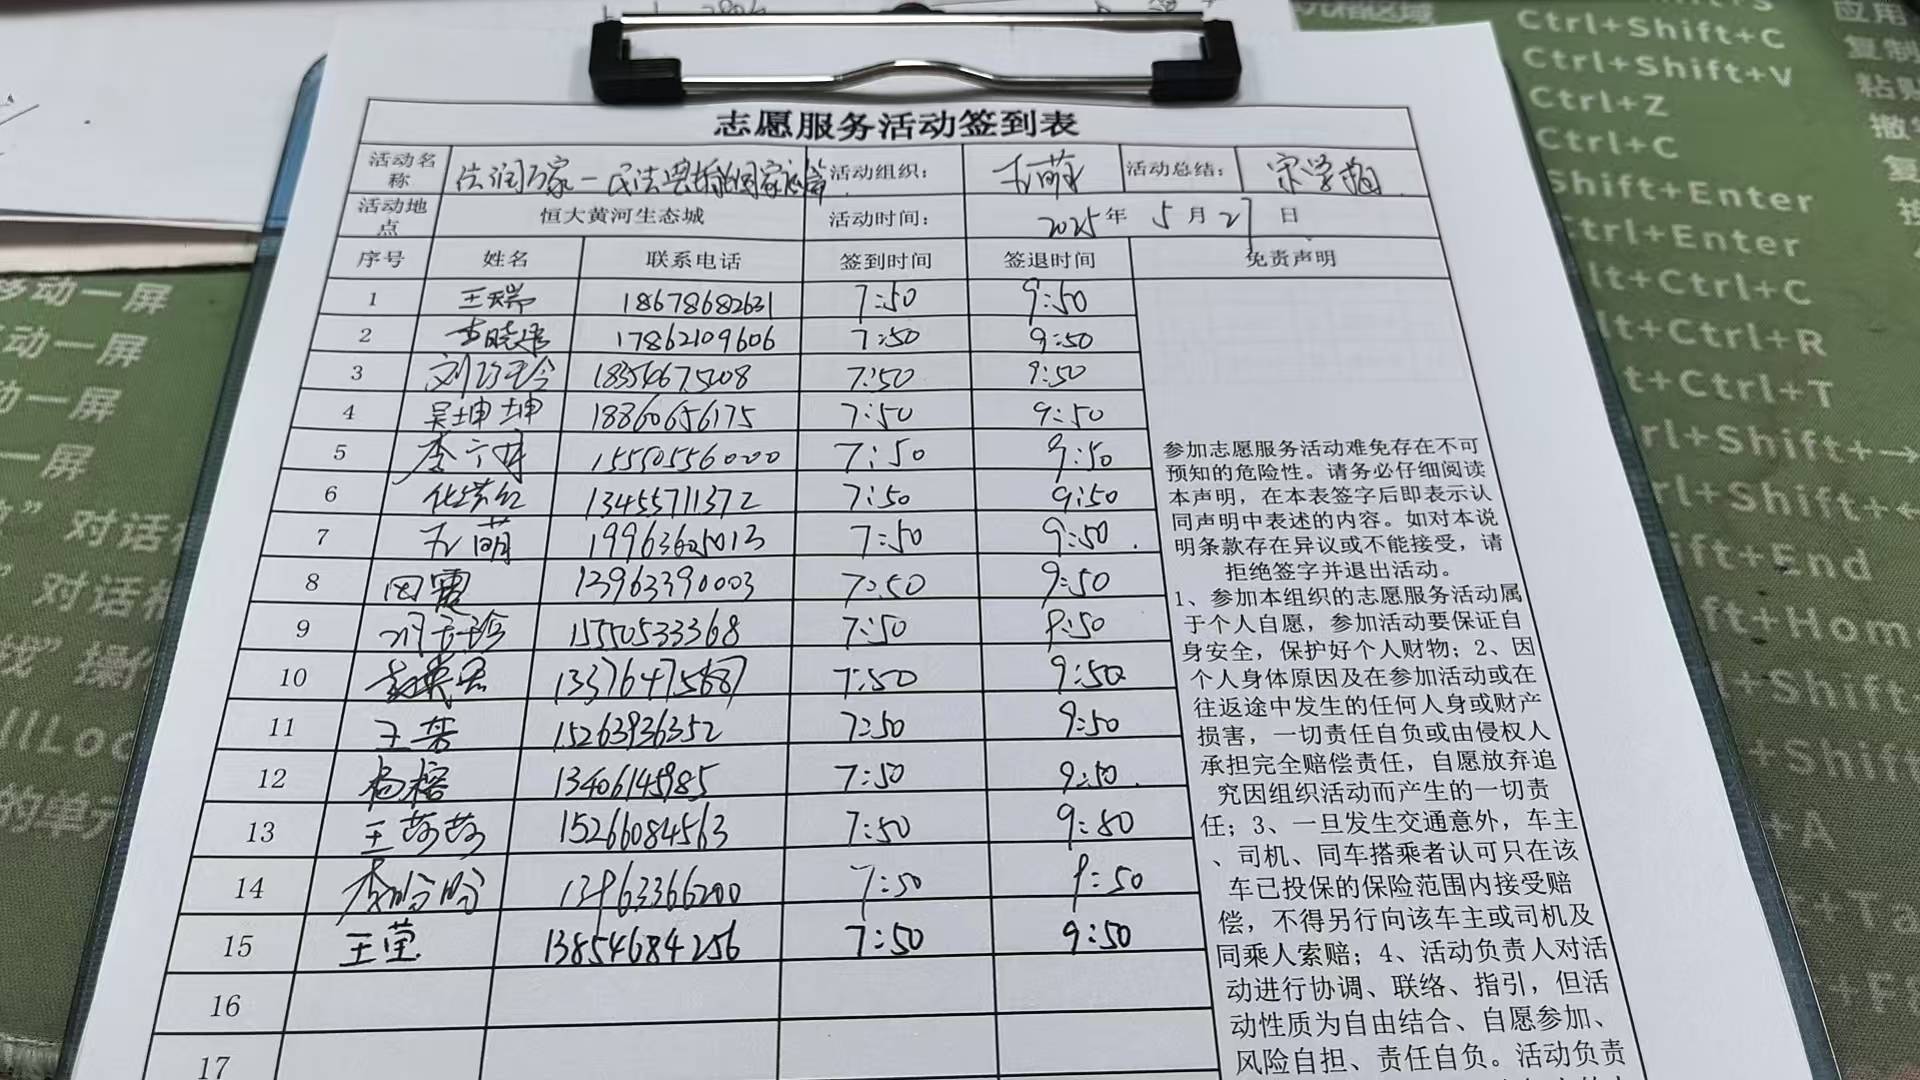 志愿服务活动签到表
活动名称 法润万家一民法典 活动组织： 王萌 活动总结：
活动地点 恒大黄河生态城 活动时间： 2025年 5月27日
序号 姓名 联系电话 签到时间 签退时间 免责声明
1 王瑞 18678682631 7:50 9:50
2 李晓 17862109606 7:50 9:50
3 刘 7:50 9:50
4 吴坤坤 18860656175 7:50 9:50
5 李 15550556000 7:50 9:50
6 13455711372 7:50 9:50
7 王萌 19963605013 7:50 9:50
8 田霞 13963390003 7:50 9:50
9 15550533368 7:50 9:50
10 7:50 9:50
11 王苦 15263936352 7:50 9:50
12 杨榕 13406145985 7:50 9:50
13 王莎莎 15266084563 7:50 9:50
14 李盼盼 13963366200 7:50 9:50
15 王莹 13854684256 7:50 9:50
16
17
参加志愿服务活动难免存在不可
预知的危险性。请务必仔细阅读
本声明，在本表签字后即表示认
同声明中表述的内容。如对本说
明条款存在异议或不能接受，请
拒绝签字并退出活动。
1、参加本组织的志愿服务活动属
于个人自愿，参加活动要保证自
身安全，保护好个人财物；2、因
个人身体原因及在参加活动或在
往返途中发生的任何人身或财产
损害，一切责任自负或由侵权人
承担完全赔偿责任，自愿放弃追
究因组织活动而产生的一切责
任；3、一旦发生交通意外，车主
、司机、同车搭乘者认可只在该
车已投保的保险范围内接受赔
偿，不得另行向该车主或司机及
同乘人索赔；4、活动负责人对活
动进行协调、联络、指引，但活
动性质为自由结合、自愿参加、
风险自担、责任自负。活动负责
移动一屏
动一屏
动一屏
一屏
”对话
”对话
”操作
llLoc
的单元
Ctrl+Shift+C
Ctrl+Shift+V
Ctrl+Z
Ctrl+C
Shift+Enter
Ctrl+Enter
lt+Ctrl+C
lt+Ctrl+R
t+Ctrl+T
rl+Shift+→
rl+Shift+←
ift+End
ft+Hom
+Shift
+Shift
+A
+Ta
应用
复制
粘贴
撤
复